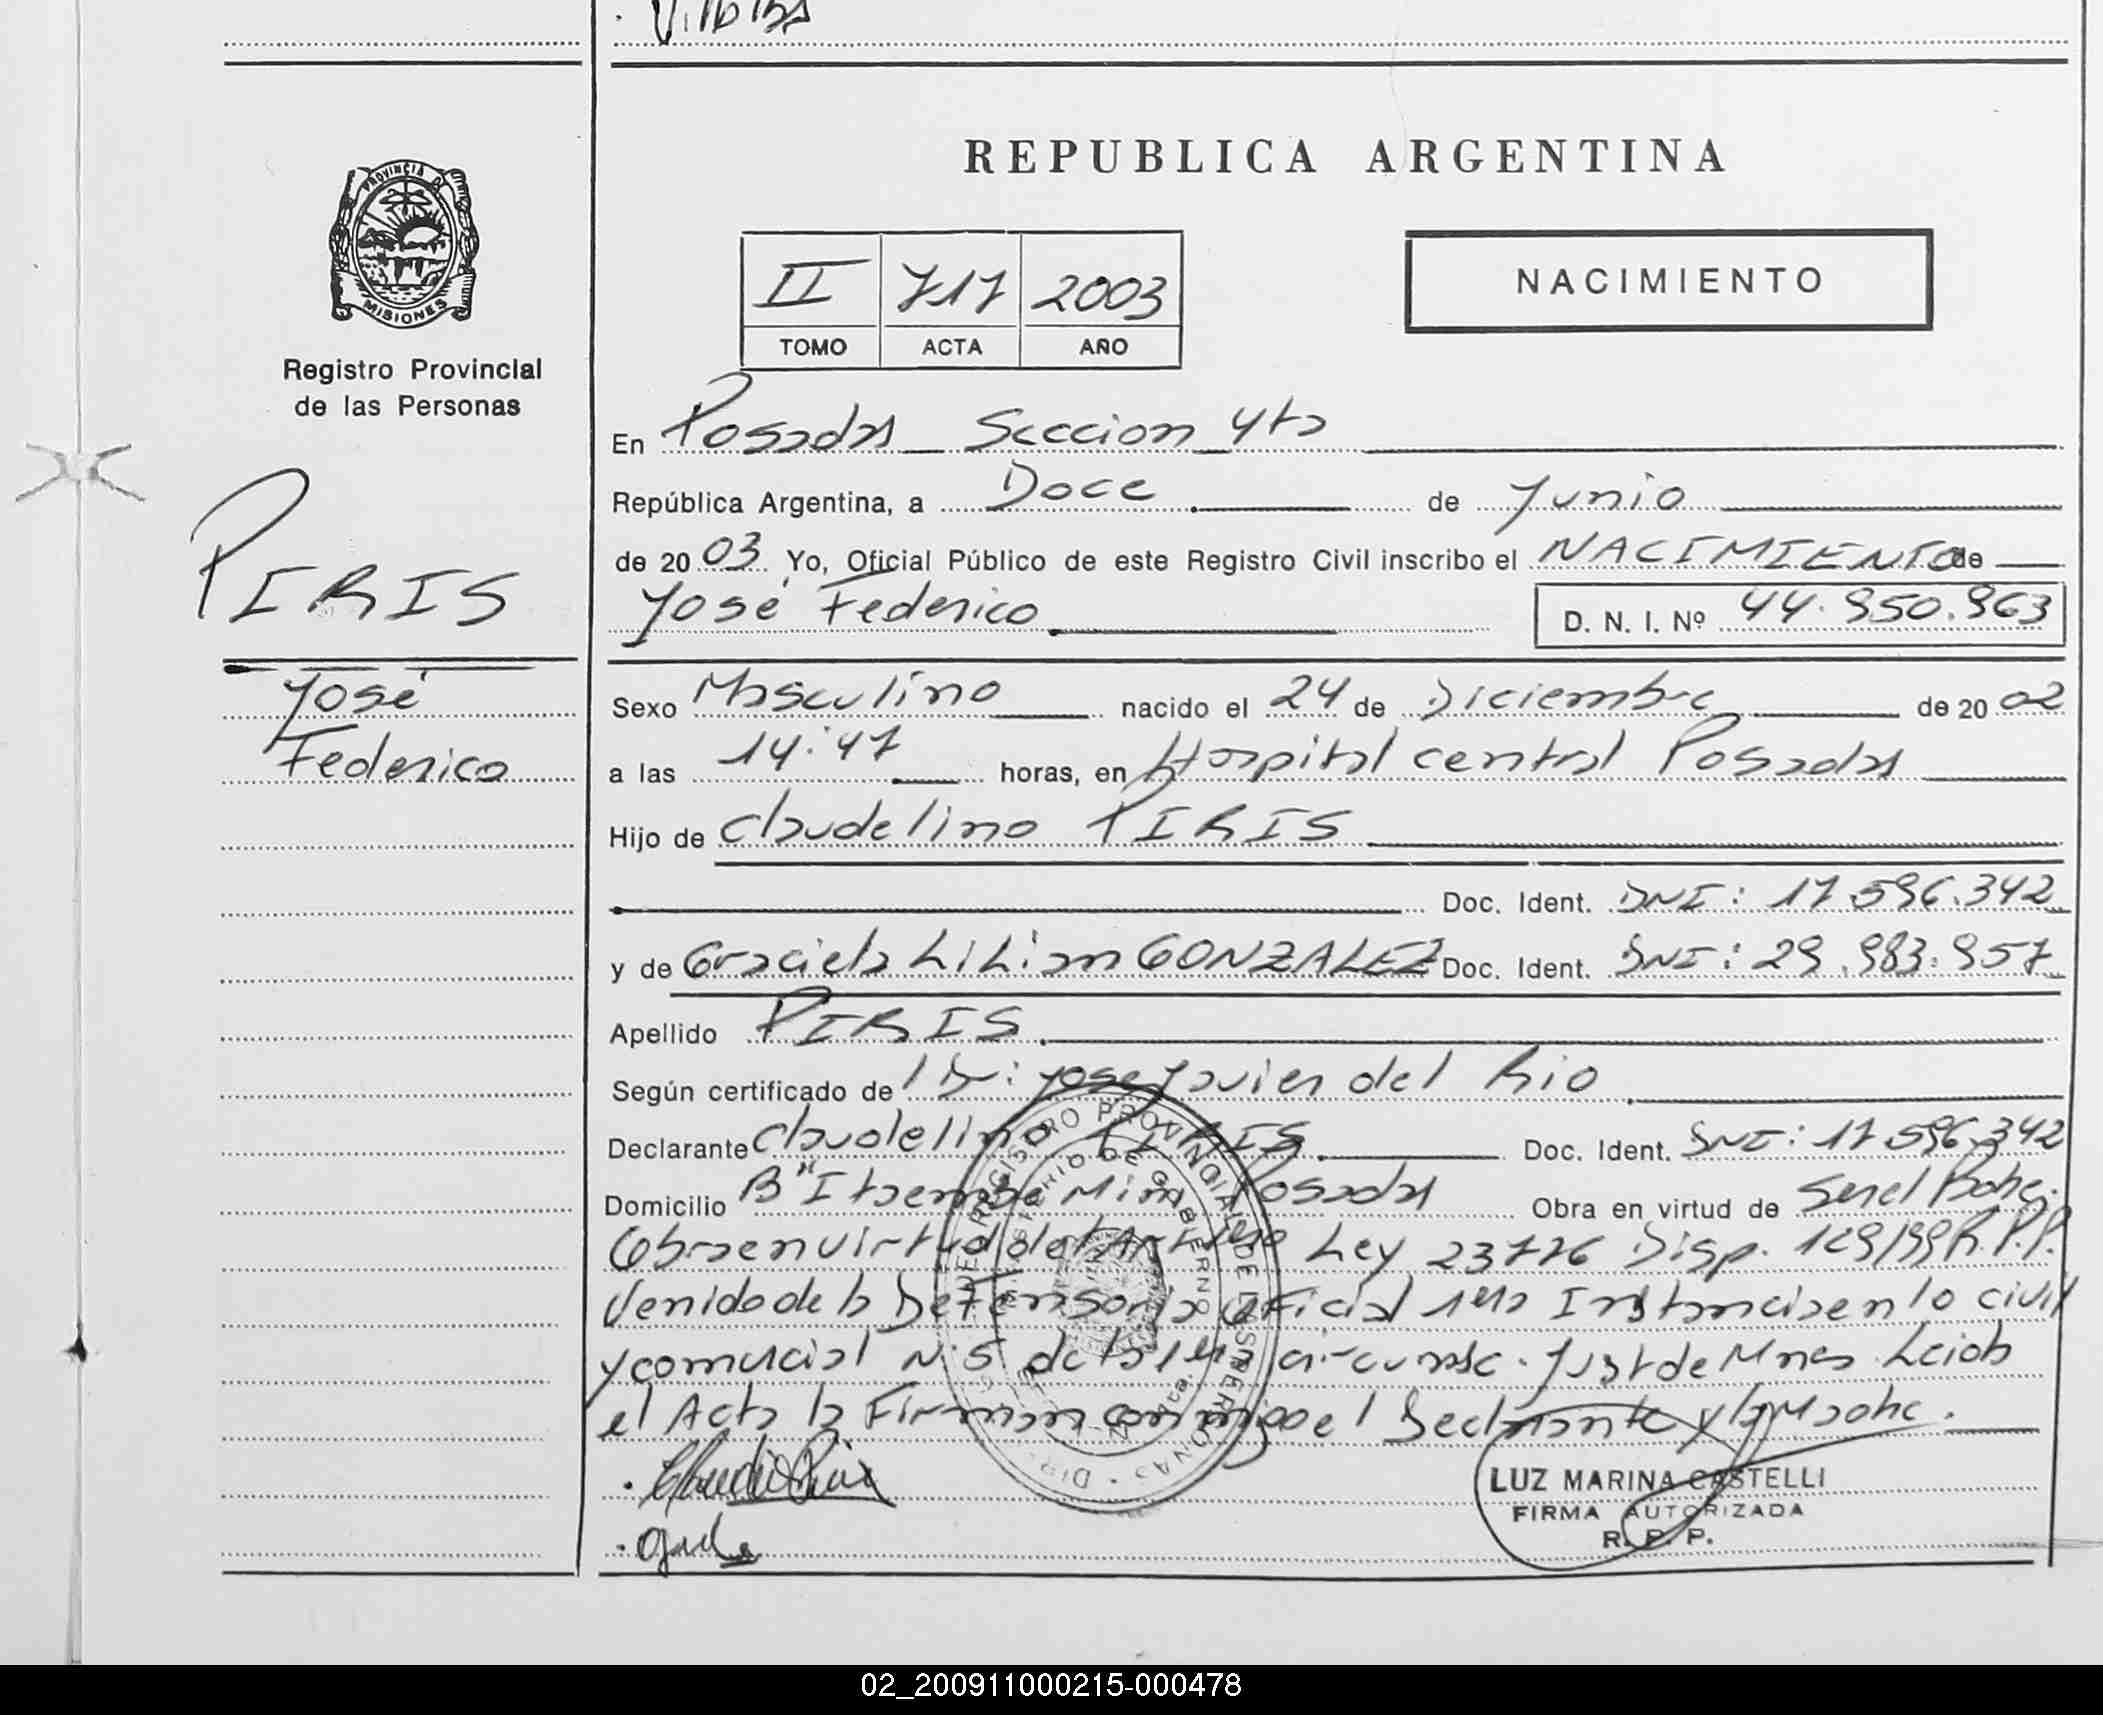 Villalba
PROVINCIA DE
MISIONES
Registro Provincial
de las Personas
PIRIS
José
Federico
REPUBLICA ARGENTINA
II 717 2003
TOMO ACTA AÑO
NACIMIENTO
En Posadas Seccion 4ta
República Argentina, a Doce de Junio
de 2003 Yo, Oficial Público de este Registro Civil inscribo el NACIMIENTO de
José Federico D. N. I. Nº 44.950.963
Sexo Masculino nacido el 24 de Diciembre de 2002
a las 14:47 horas, en Hospital central Posadas
Hijo de Claudelino PIRIS
Doc. Ident. DNI: 17.596.342
y de Graciela Lilian GONZALEZ Doc. Ident. DNI: 29.983.957
Apellido PIRIS
Según certificado de Dr: Jose Javier del Rio
Declarante Claudelino PIRIS Doc. Ident. DNI: 17.596.342
Domicilio Bº Itaembe Mini Posadas Obra en virtud de
Obra en virtud del Art Ley 23776 Disp. 129/99 R.P.P.
Venido de la Defensoria Oficial 1era Instancia en lo civil
y comercial Nº5 de la 1era circunsc. Just de Mnes. Leida
el Acta la Firman conmigo el Declarante y la Madre.
REGISTRO PROVINCIAL DE LAS PERSONAS
MINISTERIO DE GOBIERNO
LUZ MARINA CASTELLI
FIRMA AUTORIZADA
R. P. P.
02_200911000215-000478